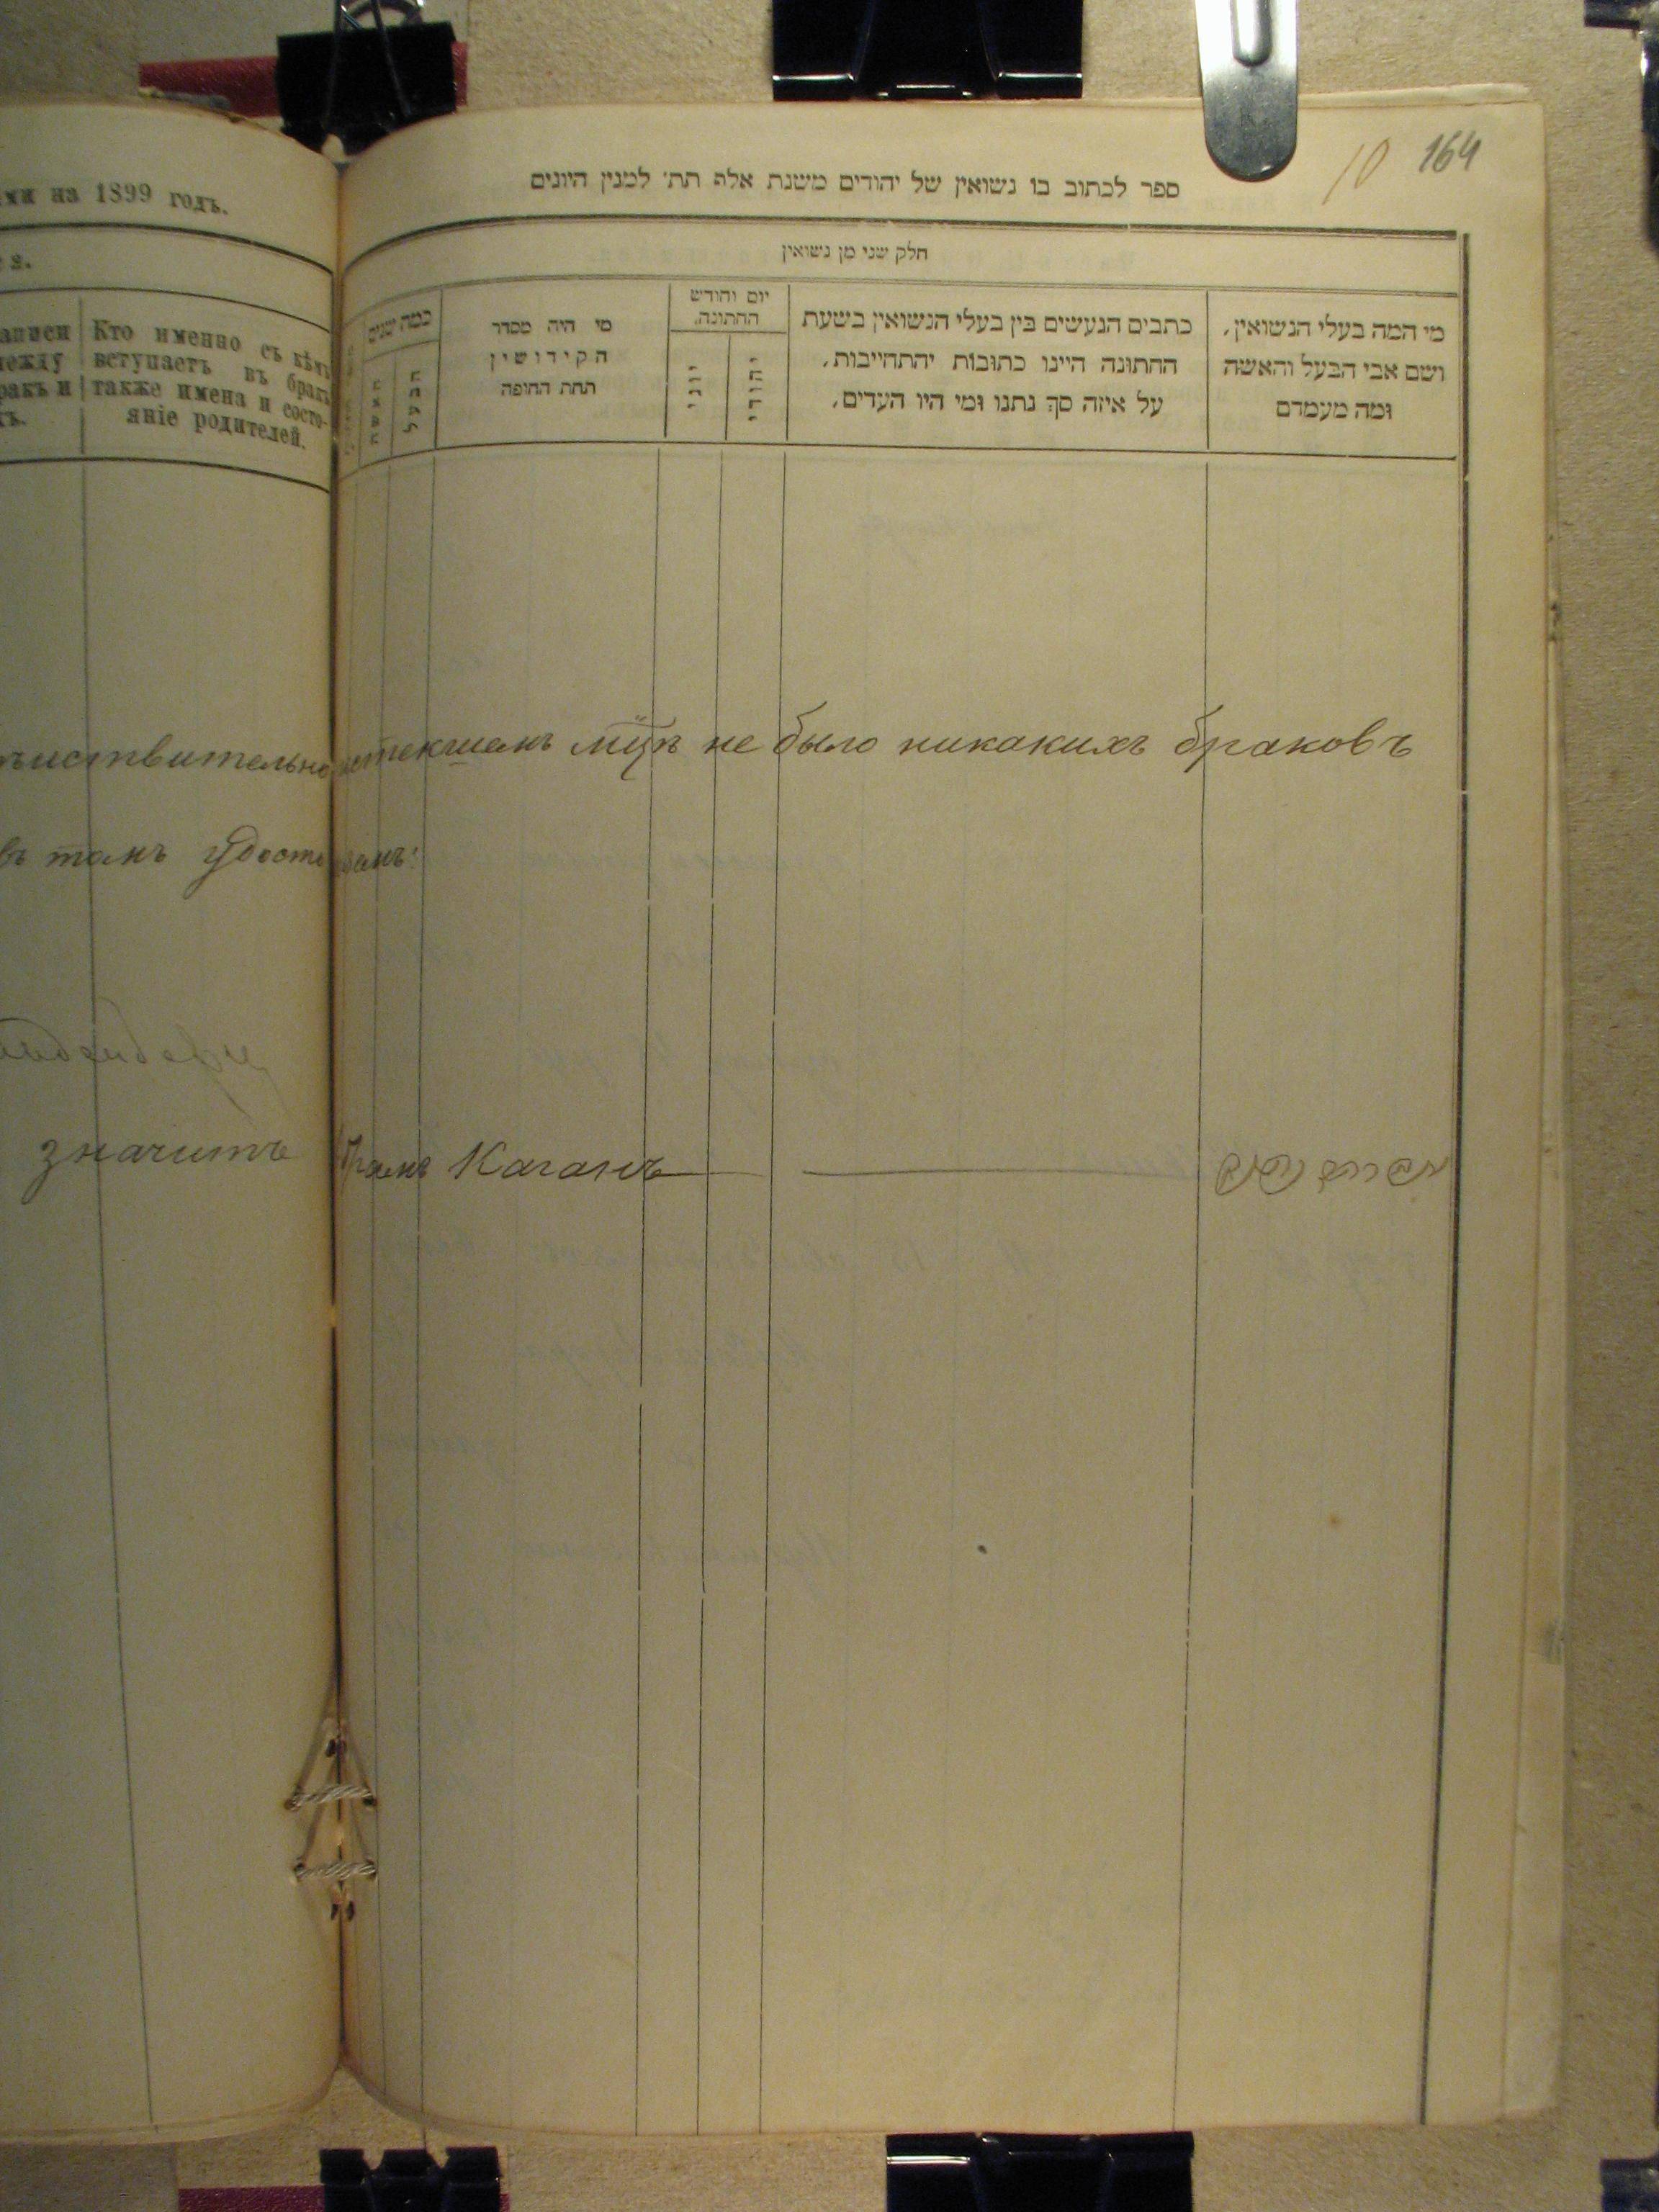 10 164
ями на 1899 годъ.
Кто именно съ кѣмъ
вступаетъ въ бракъ
также имена и состо-
яніе родителей.
аписи
между
ракъ и
ספר לכתוב בו נשואין של יהודים משנת אלף תת׳ למנין היונים
חלק שני מן נשואין
מי המה בעלי הנשואין,
ושם אבי הבעל והאשה
ומה מעמדם
כתבים הנעשים בין בעלי הנשואין בשעת
החתונה היינו כתובות יהתחייבות,
על איזה סך נתנו ומי היו העדים,
יום וחודש
החתונה.
יהודי
יוני
מי היה מסדר
הקידושין
תחת החופה
כמה שנים
הבעל
האשה
не было никакихъ браковъ
въ томъ
значитъ Каганъ